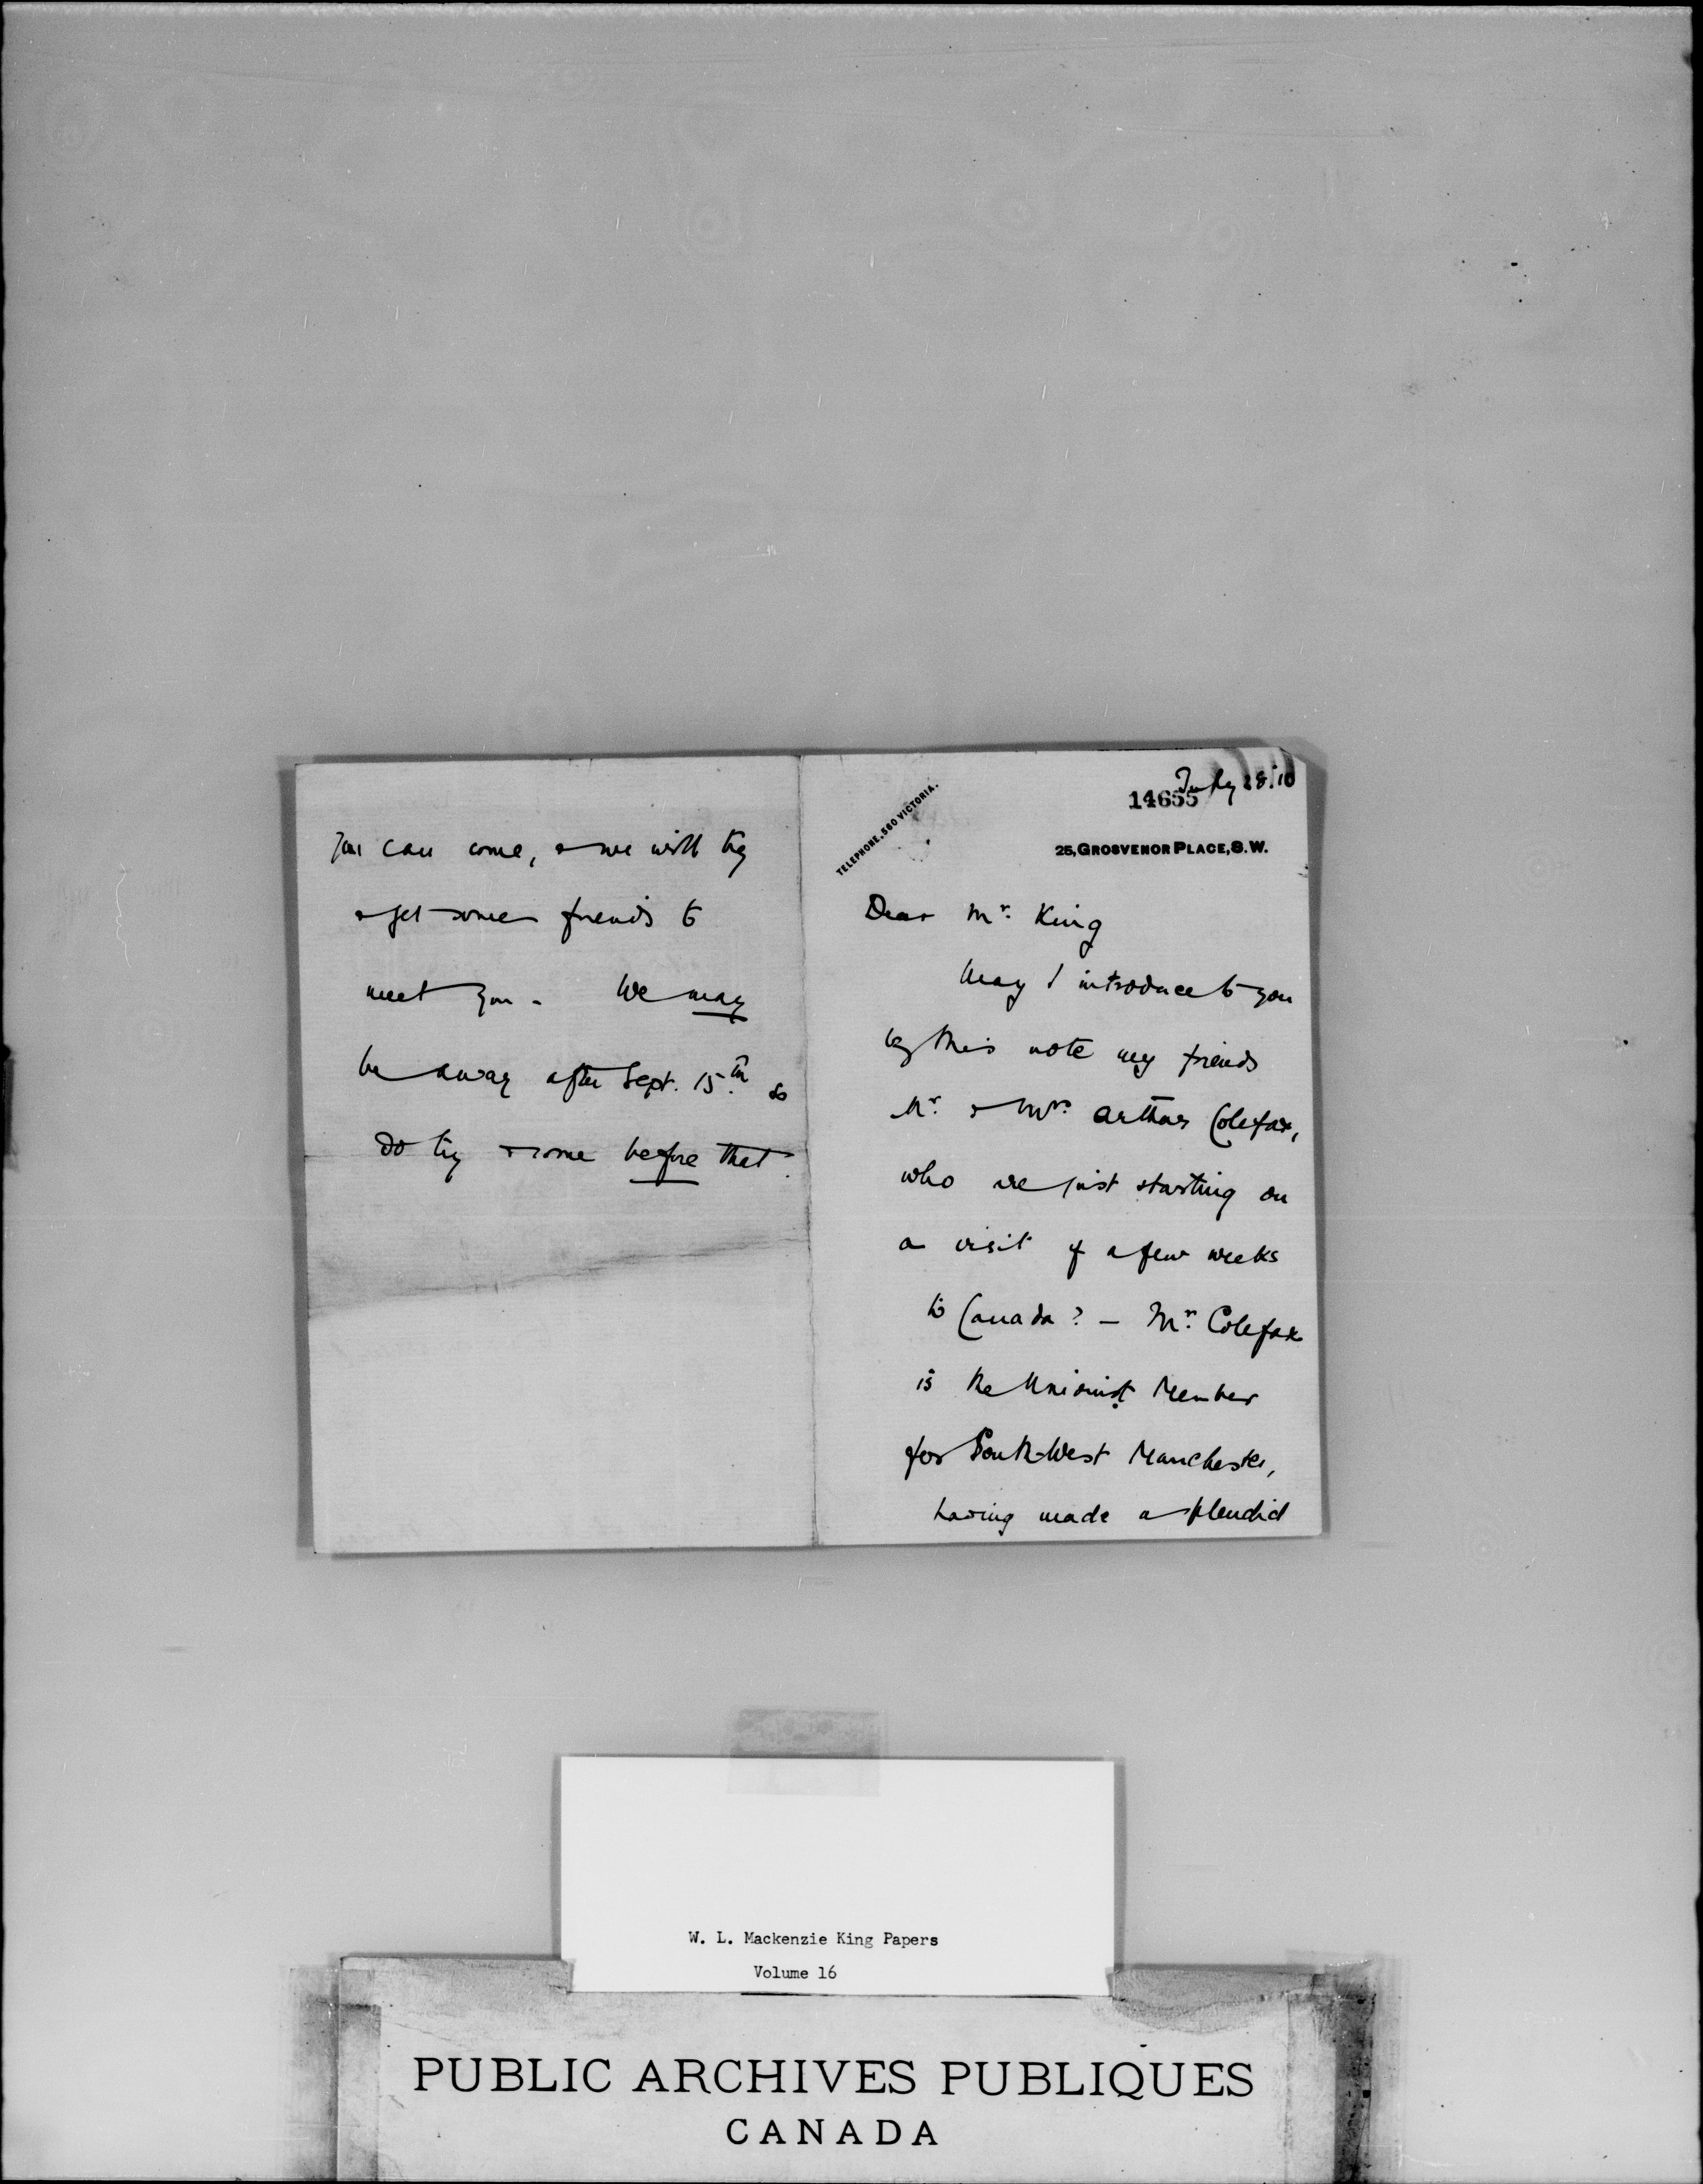 you can come, & we will try
& get some friends to
meet you - We may
be away after Sept. 15th so
do try & come before that.
July 28. '10
14655
TELEPHONE, 560 VICTORIA.
25, GROSVENOR PLACE, S.W.
Dear Mr. King
May I introduce to you
by this note my friends
Mr. & Mrs. Arthur Colefax,
who are just starting on
a visit of a few weeks
to Canada? - Mr. Colefax
is the Unionist Member
for South-West Manchester,
having made a splendid
W. L. Mackenzie King Papers
Volume 16
PUBLIC ARCHIVES PUBLIQUES
CANADA